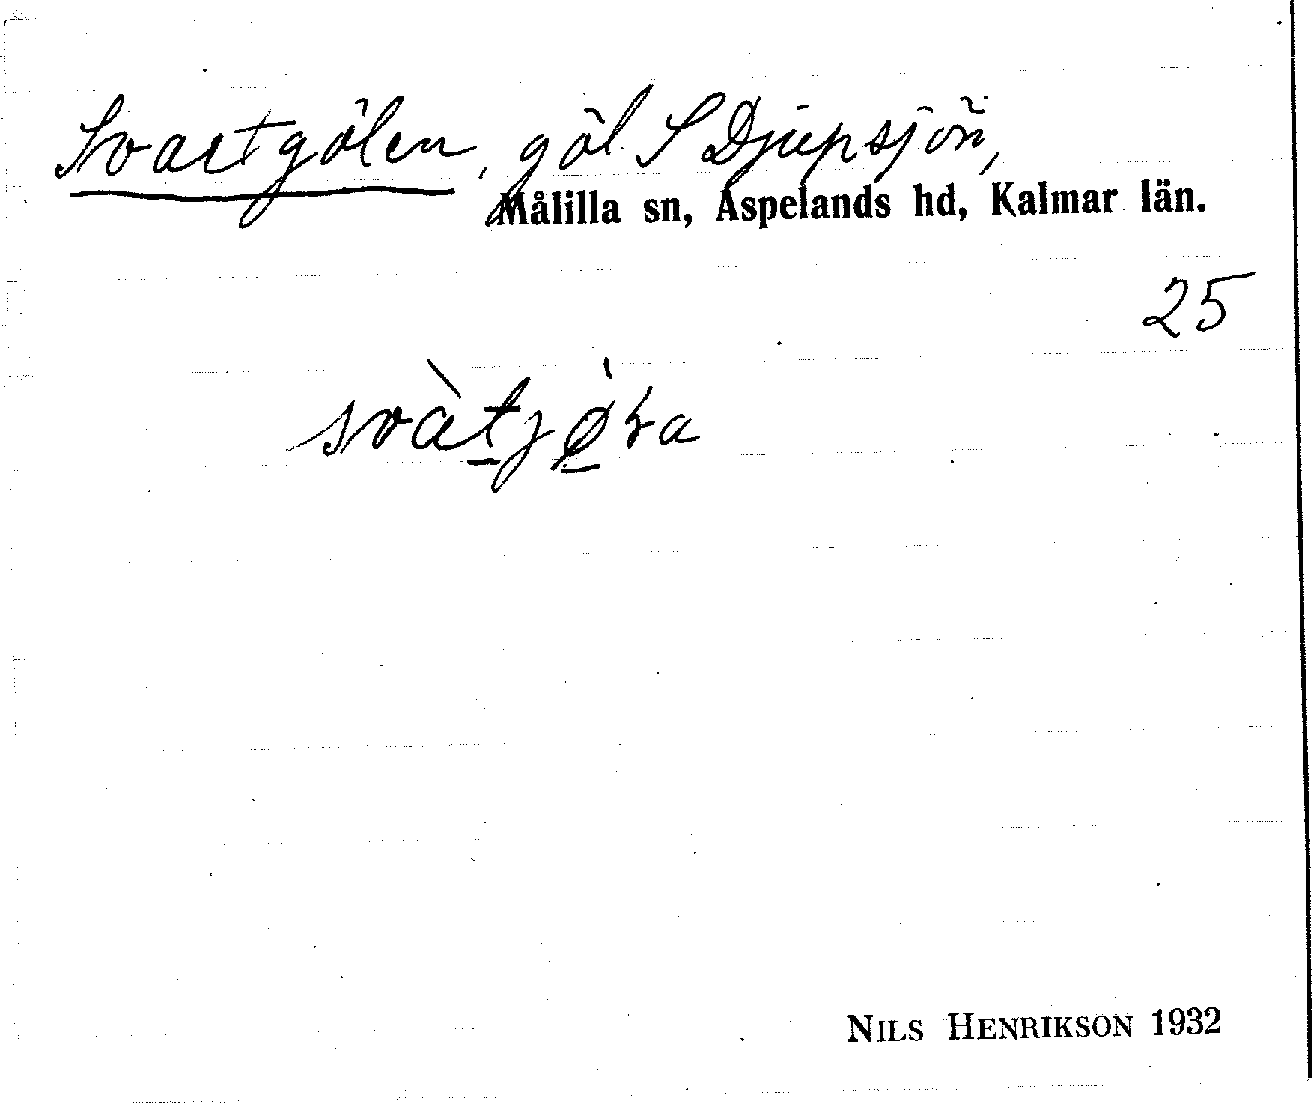 Svartgölen, göl S Djupsjön,
Målilla sn, Aspelands hd, Kalmar län.
25
NILS HENRIKSON 1932